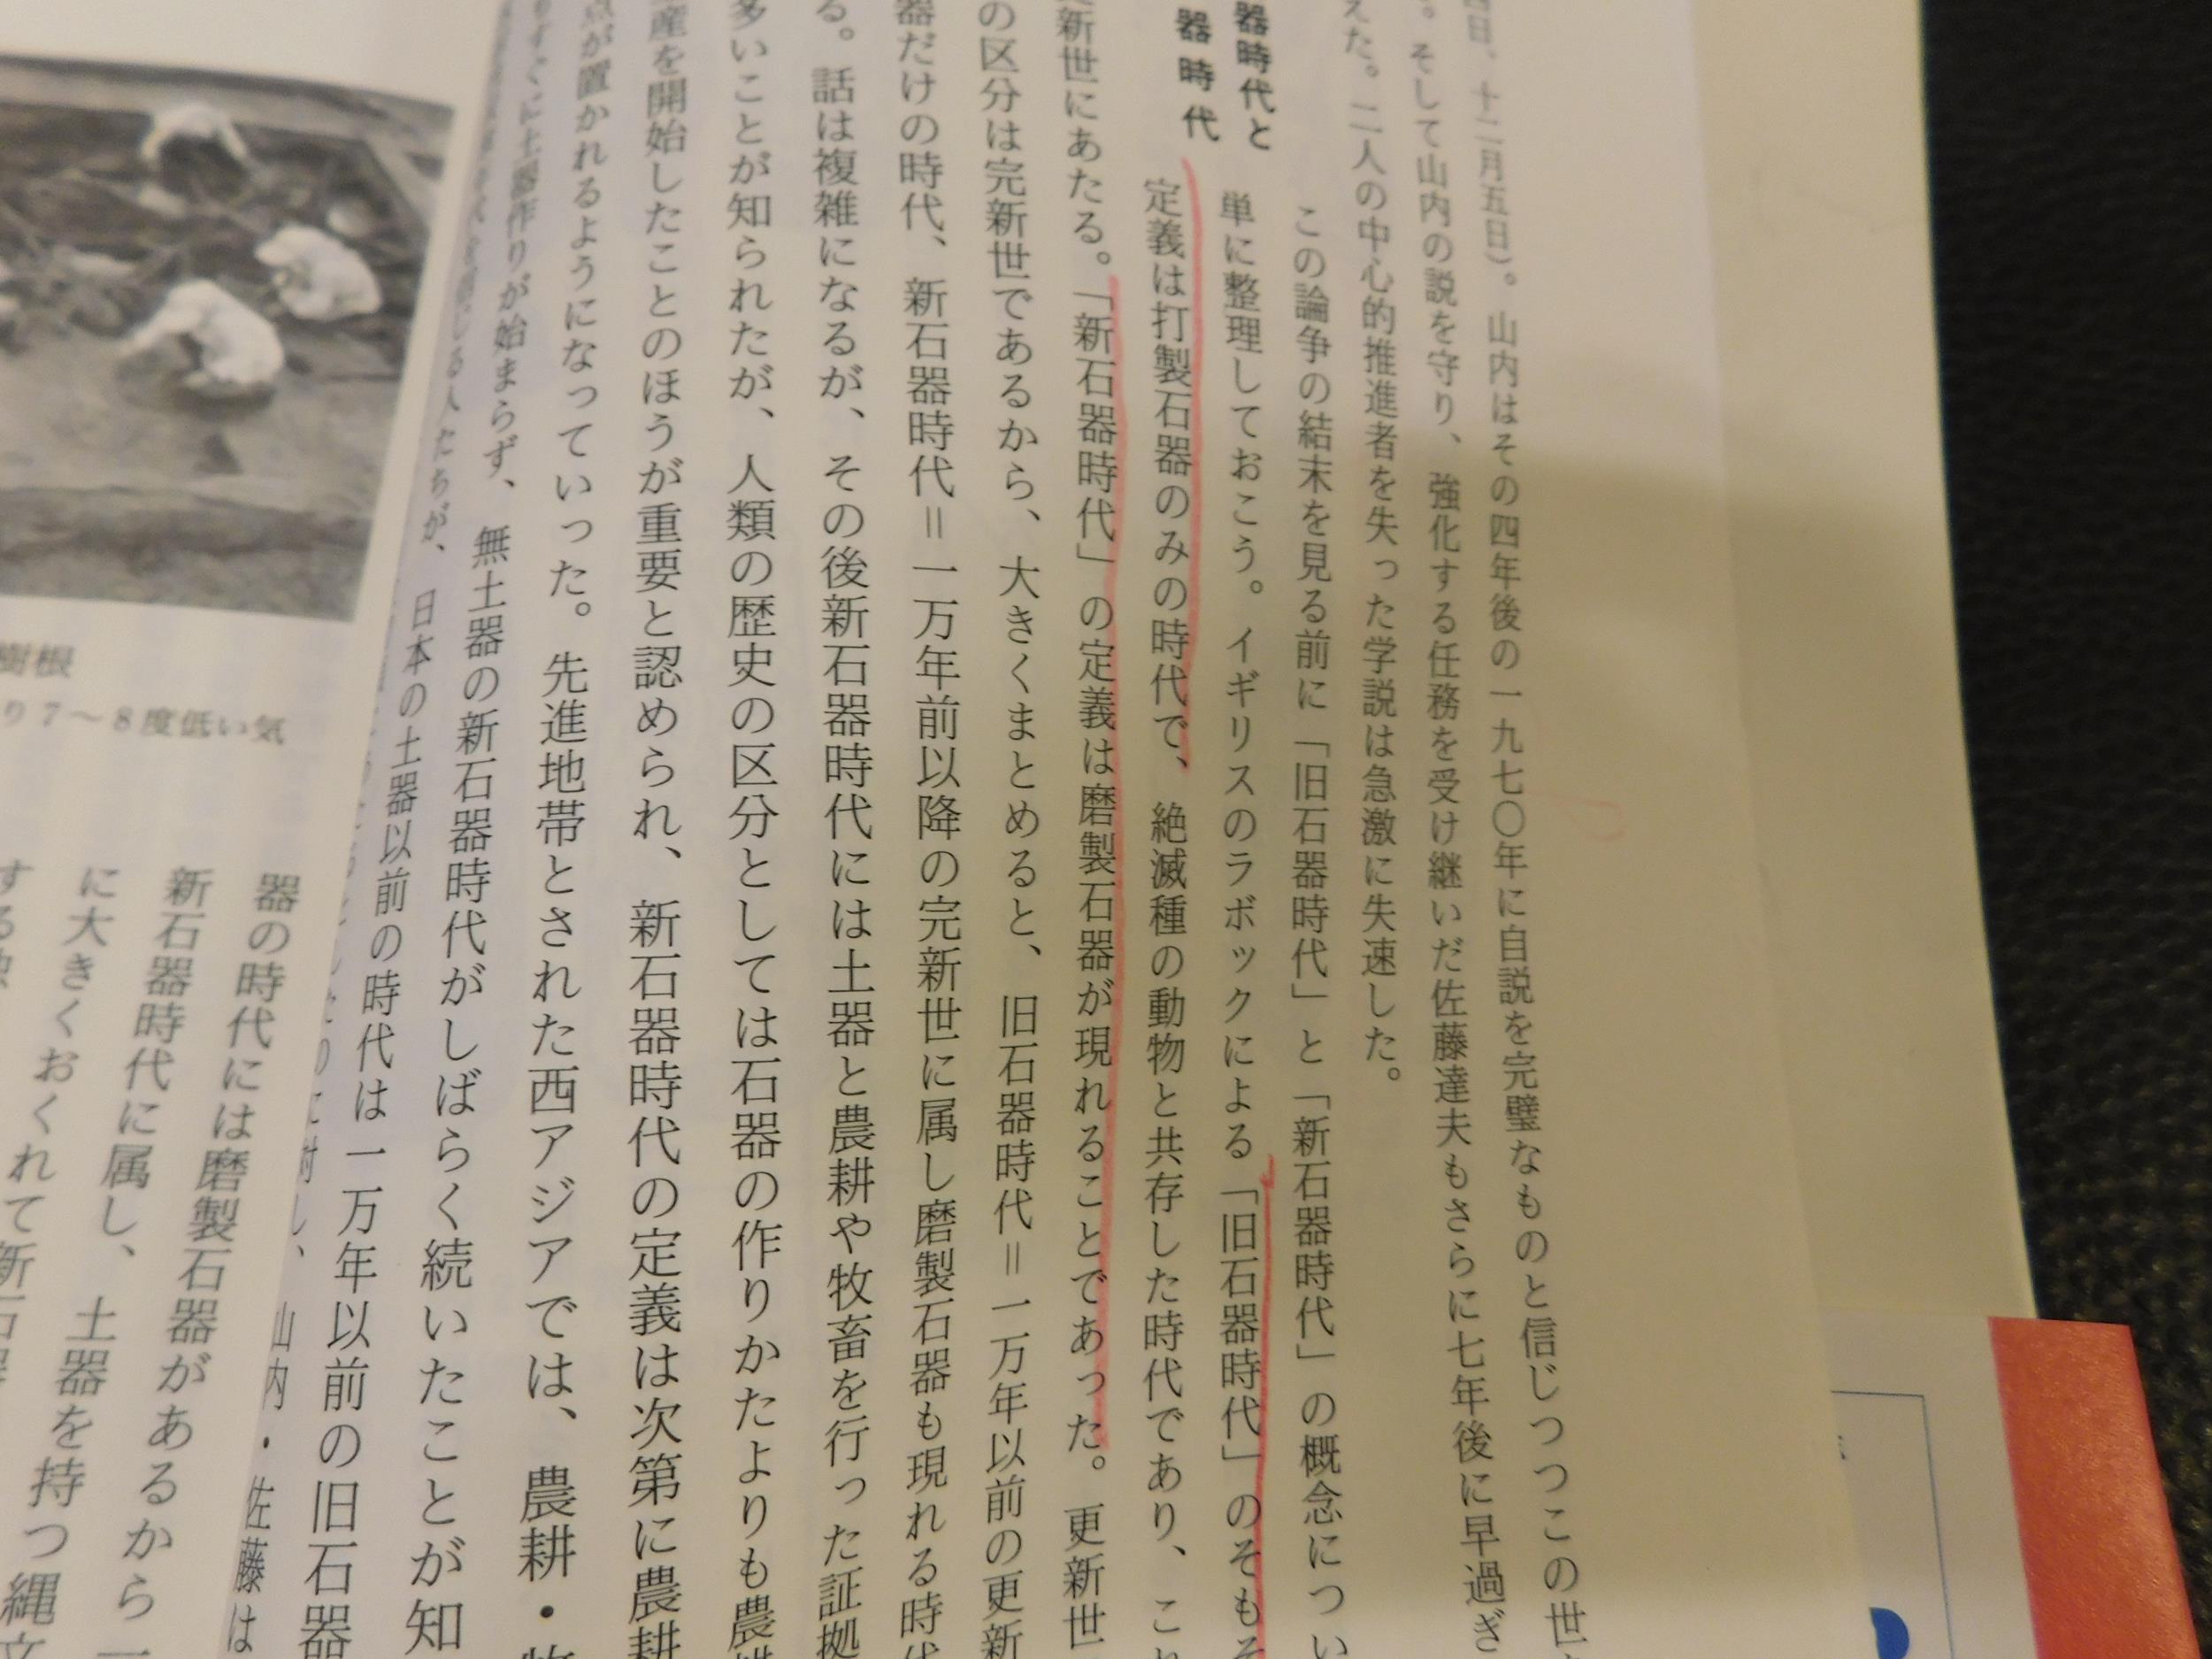 四日、十二月五日）。山内はその四年後の一九七〇年に自説を完璧なものと信じつつこの世
。そして山内の説を守り、強化する任務を受け継いだ佐藤達夫もさらに七年後に早過ぎ
えた。二人の中心的推進者を失った学説は急激に失速した。
この論争の結末を見る前に「旧石器時代」と「新石器時代」の概念につい
器時代と
器時代
単に整理しておこう。イギリスのラボックによる「旧石器時代」のそもそ
定義は打製石器のみの時代で、絶滅種の動物と共存した時代であり、これ
更新世にあたる。「新石器時代」の定義は磨製石器が現れることであった。更新世
の区分は完新世であるから、大きくまとめると、旧石器時代＝一万年以前の更新
器だけの時代、新石器時代＝一万年前以降の完新世に属し磨製石器も現れる時代
る。話は複雑になるが、その後新石器時代には土器と農耕や牧畜を行った証拠
多いことが知られたが、人類の歴史の区分としては石器の作りかたよりも農耕
産を開始したことのほうが重要と認められ、新石器時代の定義は次第に農耕
点が置かれるようになっていった。先進地帯とされた西アジアでは、農耕・牧
すぐに土器作りが始まらず、無土器の新石器時代がしばらく続いたことが知
る人たちが、日本の土器以前の時代は一万年以前の旧石器
に対し、山内・佐藤は
器の時代には磨製石器があるから一
新石器時代に属し、土器を持つ縄文
に大きくおくれて新石器
する
樹根
り7～8度低い気